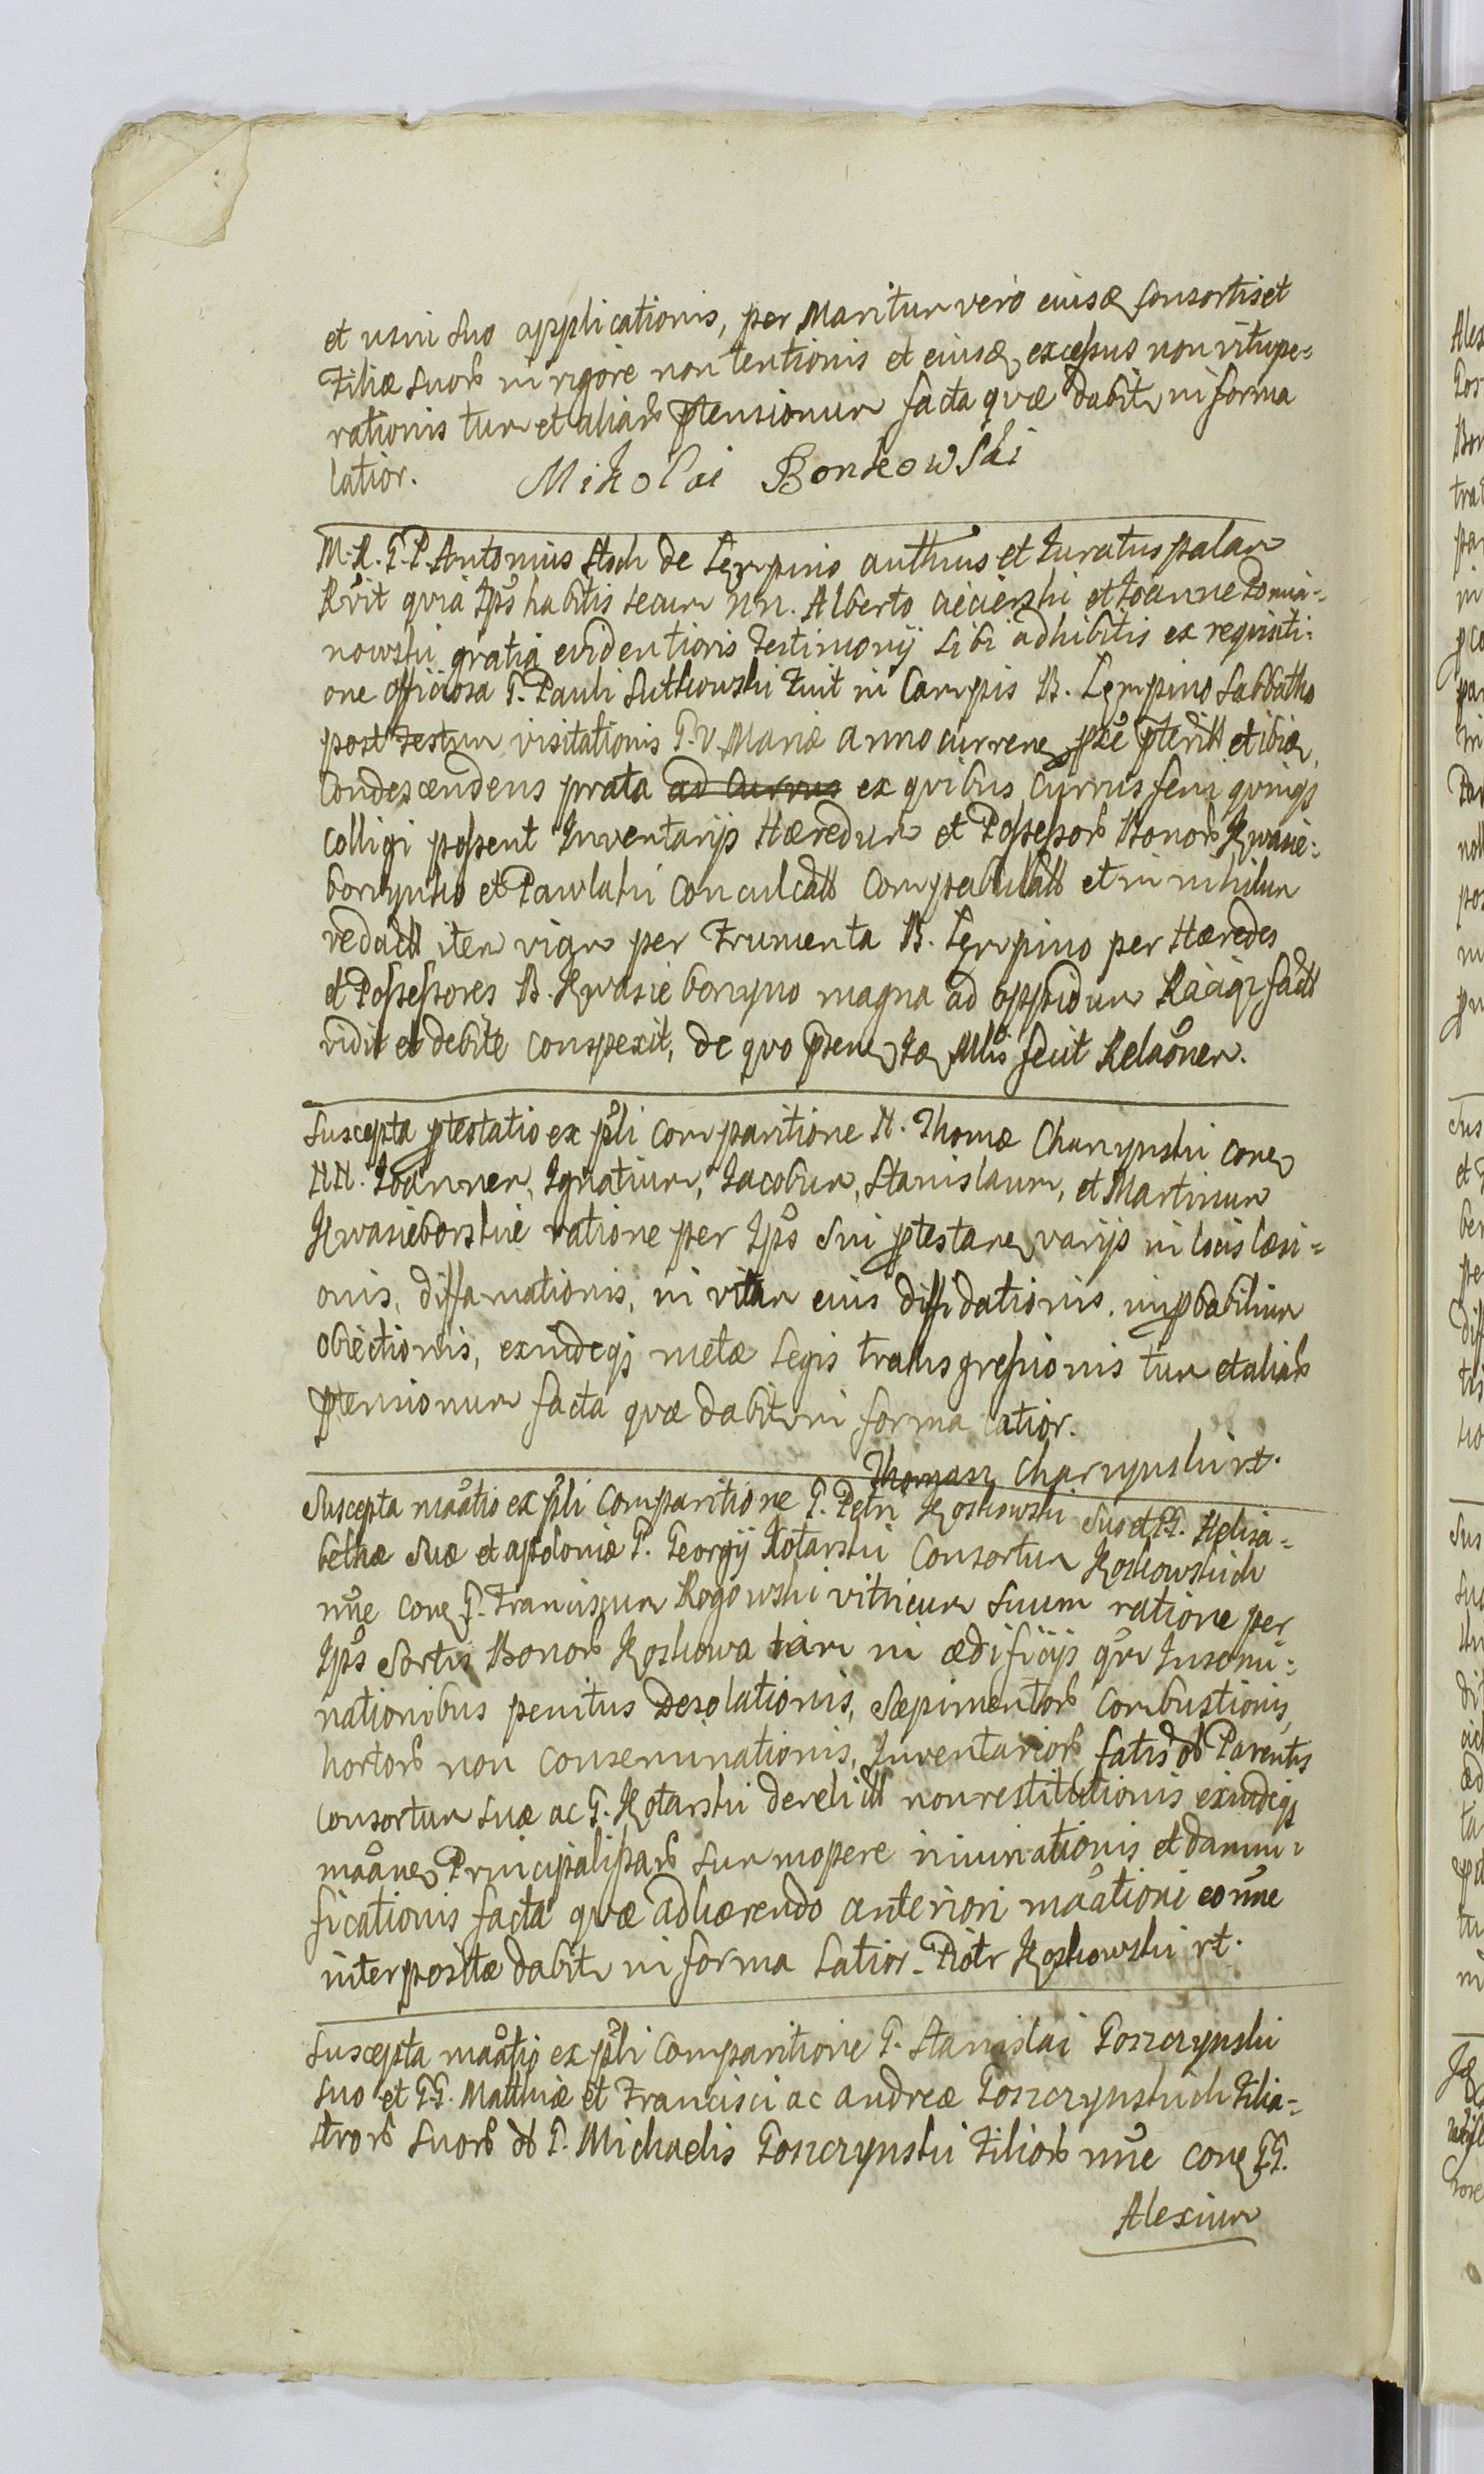 et usui suo applicationis, per Maritum vero eiusq consortis et
Filiæ suorb in rigore non tentionis et eiusq excessus non vitupe=
rationis tum et aliarb ptensionum facta quæ dabit in forma
latior. Mikolai Bonkowski
M. R. G. P. Antonius Stoch de Lempino authius et Juratus palam
Rvit quia Ips habitis secum NN. Alberto ciecierski et Joanne Domia=
nowski gratia evidentioris Testimonij sibi adhibitis ex requisiti=
one officiosa G. Pauli Sutkowski Fuit in Campis B. Lempino Sabbatho
post Festum visitationis G. V. Mariæ anno currene pte pterit et ibiq
Condescendens prata ad Currus ex quibus Currus feni quinqs
colligi possent Inventarijs Hæredum et Possessorb Bonorb Kwasie=
bonynho et Pawlaki conculcatt compabulatt et in nihilum
redactt item viam per Frumenta B. Lempino per Hæredes
et Possessores B. Kwasie bonyno magna ad oppidum Raciąz factt
vidit et debite conspexit, de quo psene Ja Mlis fecit Relaonem.
Suscepta ptestatio ex pli comparitione N. Thomæ Charzynski cone
NN. Joannem, Ignatium, Jacobum, Stanislaum, et Martinum
Kwasieborskie ratione per Ips Sui ptestane varijs in locis læsi=
onis, diffamationis, in vitam eius diffidationis, impbabilium
obiectionis, exindeqs metæ Legis transgressionis tum et aliarb
ptensionum facta quæ dabit in forma latior.
Thomasz Charzynski rt.
Suscepta maatio ex pli comparitione G. Petri Koskowski suo et GG. Helisa=
bethæ suæ et apoloniæ G. Georgij Kotarski Consortum Koskowskich
nne cone G. Franciscum Rogowski vitricum suum ratione per
Ips Sortis Bonorb Koskowa tam in ædificijs qm Insemi=
nationibus penitus Desolationis, Sæpimentorb combustionis,
hortorb non conseminationis, Inventariorb fatis ob Parentis
consortum suæ ac G. Kotarski derelictt non restitutionis exindeqs
maane Principalisparb summopere iniuriationis et damni=
ficationis facta quæ adhærendo anteriori maationi eo nne
interpositæ dabit in forma Latior. Piotr Koskowski rt.
Suscepta maatio ex pli comparitione G. Stanislai Goszczynski
suo et GG. Matthiæ et Francisci ac andreæ Goszczynskich Filia=
strorb suorb ob G. Michaelis Goszczynski Filiorb nne cone GG.
Alexium